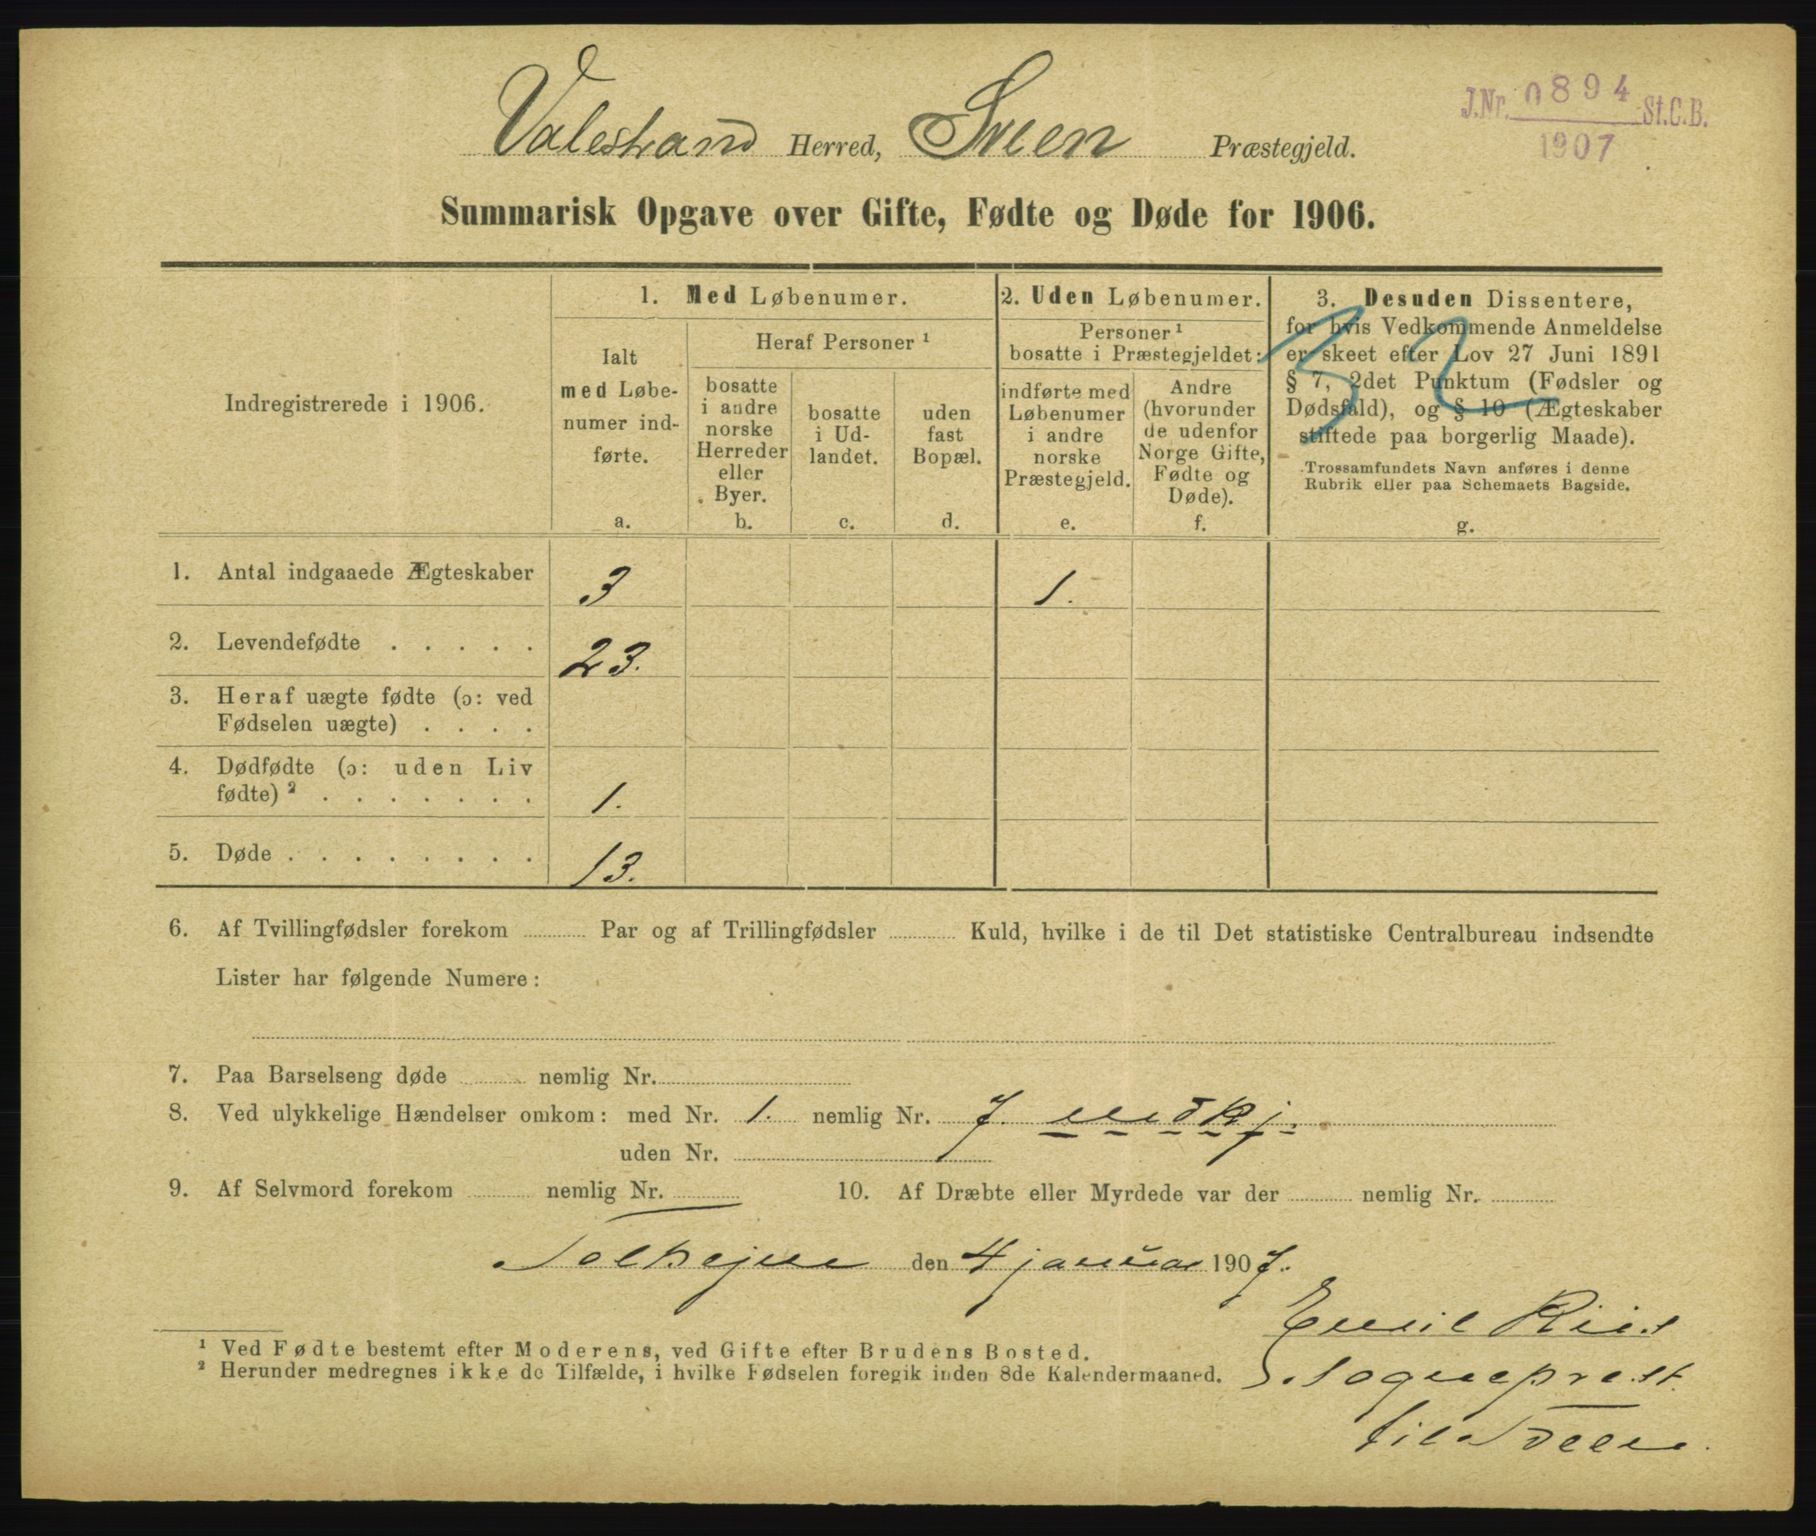 Valestrand Herred, Sveen Præstegjeld.
J.Nr. 0894 St.C.B.
1907
Summarisk Opgave over Gifte, Fødte og Døde for 1906.
Indregistrerede i 1906.
1. Med Løbenumer.
Ialt
med Løbe-
numer ind-
førte.
a.
Heraf Personer ¹
bosatte
i andre
norske
Herreder
eller
Byer.
b.
bosatte
i Ud-
landet.
c.
uden
fast
Bopæl.
d.
2. Uden Løbenumer.
Personer ¹
bosatte i Præstegjeldet:
indførte med
Løbenumer
i andre
norske
Præstegjeld.
e.
Andre
(hvorunder
de udenfor
Norge Gifte,
Fødte og
Døde).
f.
3. Desuden Dissentere,
for hvis Vedkommende Anmeldelse
er skeet efter Lov 27 Juni 1891
§ 7, 2det Punktum (Fødsler og
Dødsfald), og § 10 (Ægteskaber
stiftede paa borgerlig Maade).
Trossamfundets Navn anføres i denne
Rubrik eller paa Schemaets Bagside.
g.
32
1. Antal indgaaede Ægteskaber 3 1.
2. Levendefødte . . . . . 23.
3. Heraf uægte fødte (ɔ: ved
Fødselen uægte) . . . .
4. Dødfødte (ɔ: uden Liv
fødte) ² . . . . . . . 1.
5. Døde . . . . . . . . 13.
6. Af Tvillingfødsler forekom ........ Par og af Trillingfødsler ........ Kuld, hvilke i de til Det statistiske Centralbureau indsendte
Lister har følgende Numere:
7. Paa Barselseng døde ........ nemlig Nr. ........
8. Ved ulykkelige Hændelser omkom: med Nr. 1. nemlig Nr. 7. mdkj.
uden Nr. ........
9. Af Selvmord forekom ........ nemlig Nr. ........ 10. Af Dræbte eller Myrdede var der ........ nemlig Nr. ........
den 4 januar 1907.
Emil Riis
Sognepræst
til Sveen.
¹ Ved Fødte bestemt efter Moderens, ved Gifte efter Brudens Bosted.
² Herunder medregnes ikke de Tilfælde, i hvilke Fødselen foregik inden 8de Kalendermaaned.